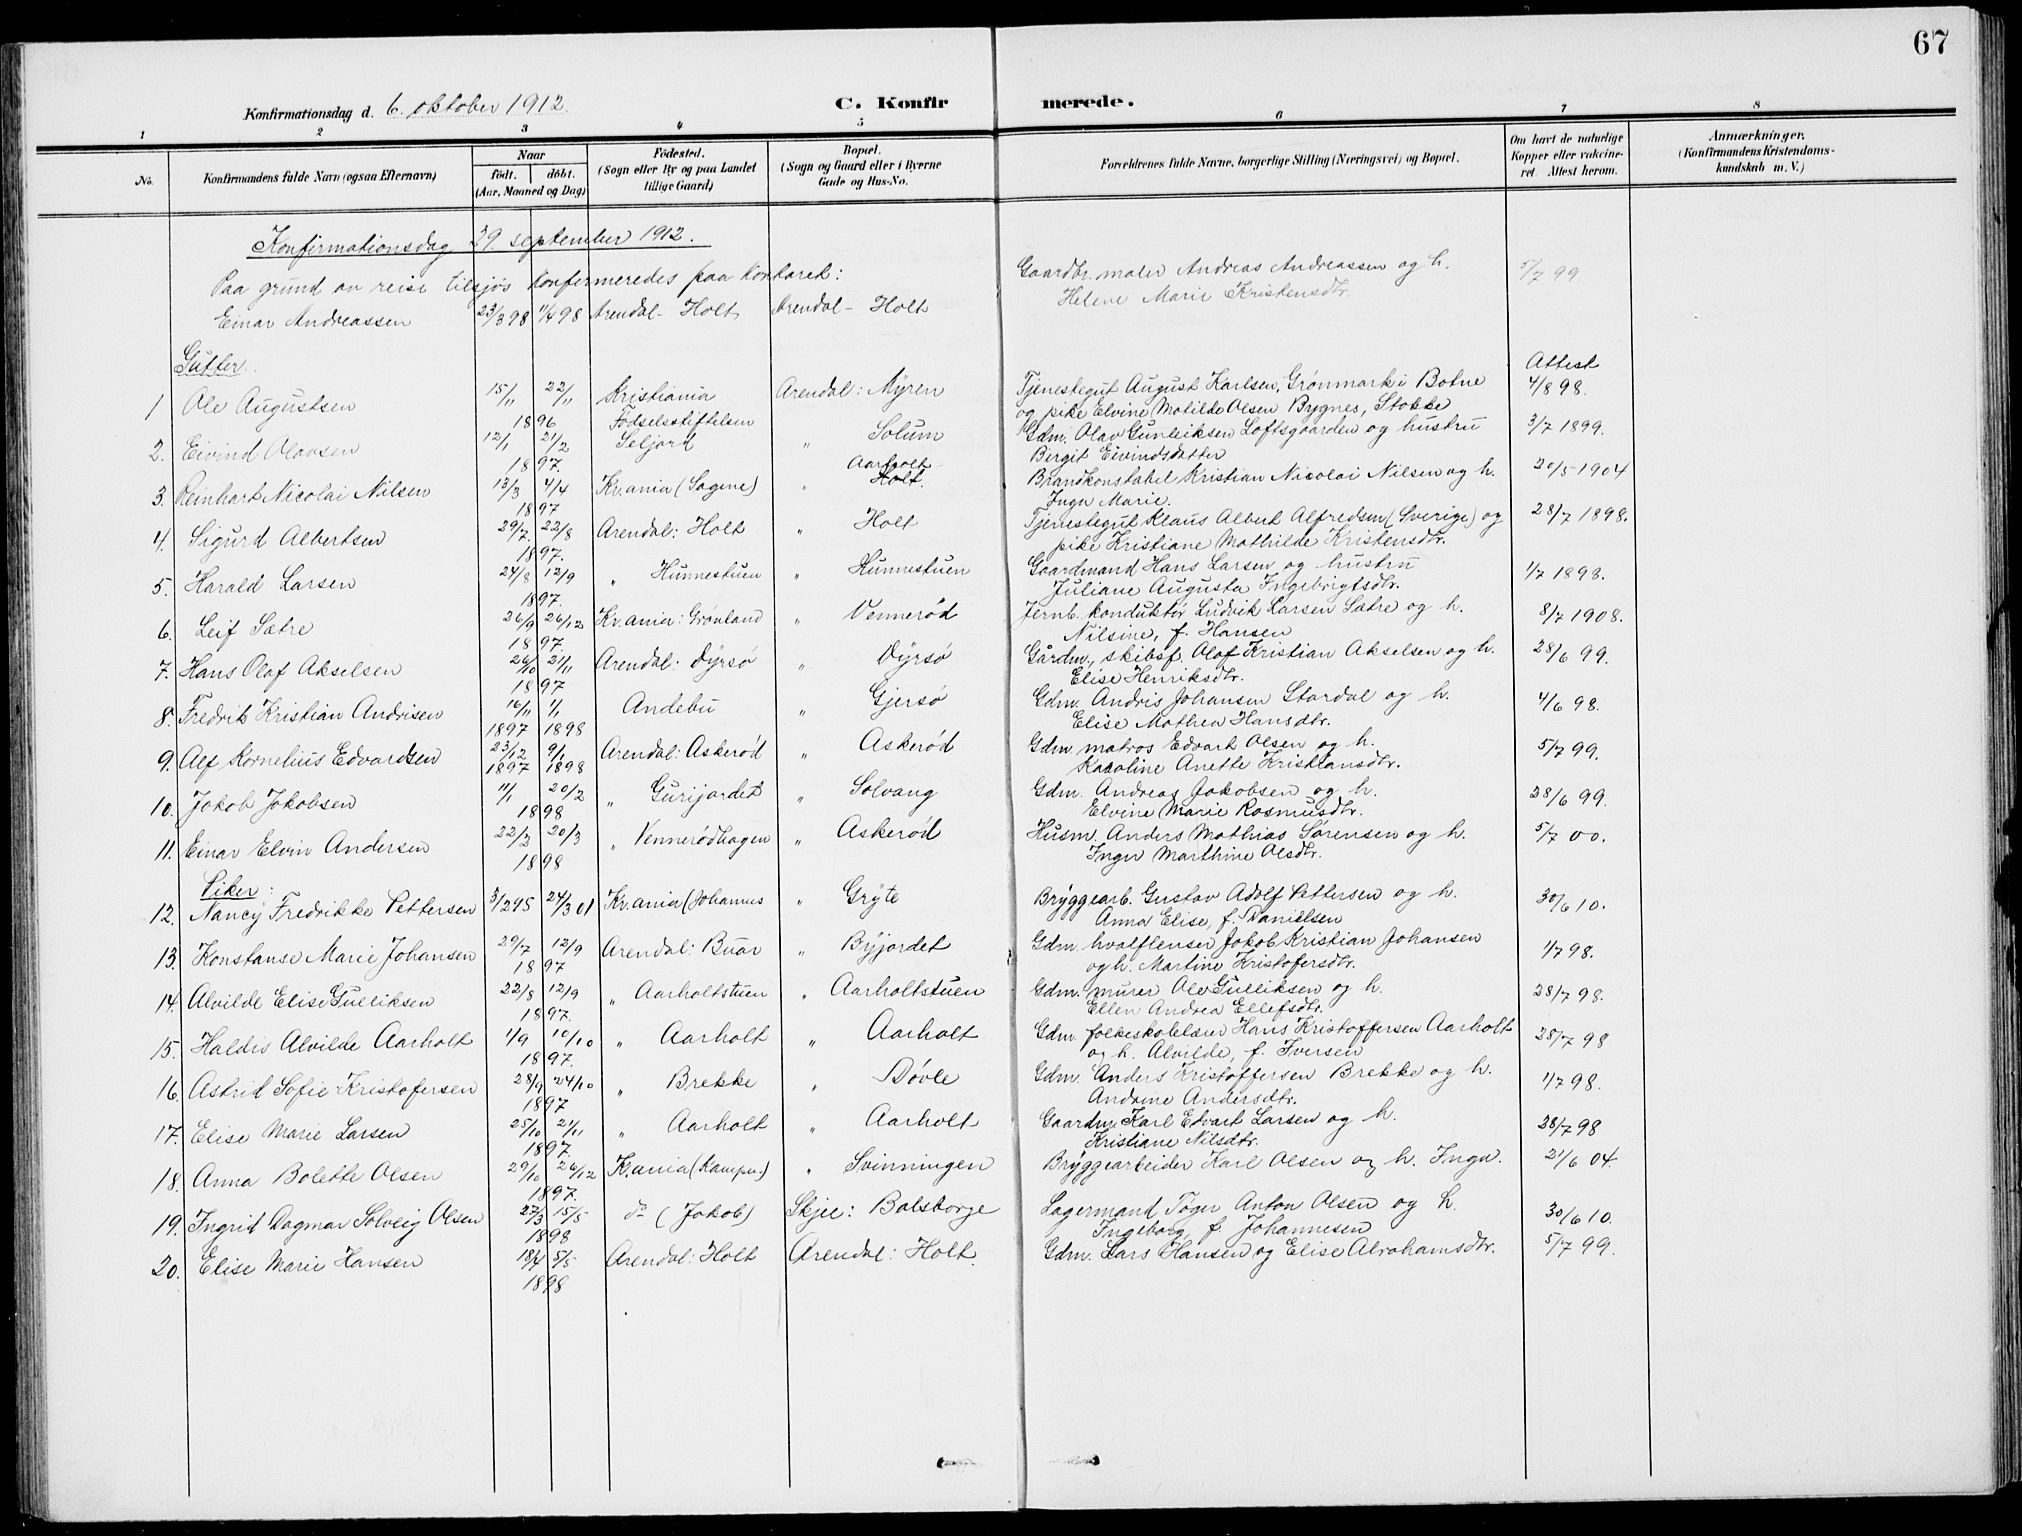 67
Konfirmationsdag d. 6. oktober 1912. C. Konfir merede.
1 2 3 4 5 6 7 8
No. Konfirmandens fulde Navn (ogsaa Efternavn) Naar født. døbt. (Aar, Maaned og Dag) Fødested. (Sogn eller By og paa Landet tillige Gaard) Bopæl. (Sogn og Gaard eller i Byerne Gade og Hus-No. Forældrenes fulde Navne, borgerlige Stilling (Næringsvei) og Bopæl. Om havt de naturlige Kopper eller vakcineret. Attest herom. Anmærkninger. (Konfirmandens Kristendomskundskab m. V.)
Konfirmationsdag 29. september 1912.
Paa grund av reise tilsjøs konfirmeredes paa kontoret: Gaardbr. maler Andreas Andreassen og h. 5/7 99
Einar Andreassen 23/3 98 11/4 98 Arendal - Holt Arendal - Holt Helene Marie Kristensdtr.
Gutter. Attest
1 Ole Augustsen 15/11 22/11 Kristiania Arendal: Myren Tjenestegut August Karlsen, Grønmark i Botne 4/8 98.
1896 Fødselsstiftelsen og pike Elvine Matilde Olsen Bygnes, Stokke
2. Eivind Olavsen 12/1 21/2 Seljord " Solum Gdm. Olav Gunleiksen Loftsgaarden og hustru 3/7 1899.
1897. Bergit Eivindsdatter
3. Reinhart Nicolai Nilsen 13/3 4/4 Kr.ania (Sagene) " Aarholt Holt. Brandkonstabel Kristian Nicolai Nilsen og h. 20/5 1904
1897 Inga Marie.
4. Sigurd Albertsen 29/7 22/8 Arendal: Holt " Holt Tjenestegut Klaus Albert Alfredsen (Sverige) og 28/7 1898.
1897. pike Kristiane Mathilde Kristensdtr.
5. Harald Larsen 24/8 12/9 " Hunnestuen " Hunnestuen Gaardmand Hans Larsen og hustru 1/7 1898.
1897. Juliane Augusta Ingebrigtsdtr.
6. Leif Sætre 26/9 26/12 Kr.ania: Grønland " Vennerød Jernb. konduktør Ludvik Larsen Sætre og h. 8/7 1908.
1897. Nilsine, f. Hansen
7. Hans Olaf Akselsen 26/10 21/11 Arendal: Dyrsø " Dyrsø Gårdm., skibsf. Olaf Kristian Akselsen og h. 28/6 99.
1897 Elise Henriksdtr.
8. Fredrik Kristian Andrisen 16/11 1/1 Andebu " Gjersø Gdm. Andris Johansen Stordal og h. 4/6 98.
1897 1898 Elise Mathea Hansdtr.
9. Alf Kornelius Edvardsen 23/12 9/1 Arendal: Askerød " Askerød Gdm. matros Edvart Olsen og h. 5/7 99.
1897 1898 Karoline Anette Kristiansdtr.
10. Jakob Jakobsen 11/1 20/2 " Gurijordet " Solvang Gdm. Andreas Jakobsen og h. 28/6 99.
1898 Elvine Marie Rasmusdtr.
11. Einar Elvin Andersen 22/2 20/3 " Vennerødhagen " Askerød Husm. Anders Mathias Sørensen og h. 5/7 00.
1898 Inger Marthine Olsdtr.
Piker:
12. Nancy Fredrikke Pettersen 3/2 95 24/3 01 Kr.ania (Johannes " Gryte Bryggearb. Gustav Adolf Pettersen og h. 30/6 10.
Anna Elise, f. Danielsen
13. Konstanse Marie Johansen 29/7 12/9 Arendal: Buar " Byjordet Gdm. hvalflenser Jakob Kristian Johansen 1/7 98.
1897 og h. Martine Kristofersdtr.
14. Alvilde Elise Gulliksen 22/8 12/9 " Aarholtstuen " Aarholtstuen Gdm. murer Ole Gulliksen og h. 28/7 98.
1897. Ellen Andrea Ellefsdtr.
15. Haldis Alvilde Aarholt 1/9 10/10 " Aarholt " Aarholt Gdm. folkeskolelærer Hans Kristoffersen Aarholt 28/7 98
1897. og h. Alvilde, f. Iversen
16. Astrid Sofie Kristofersen 28/9 24/10 " Brekke " Døvle Gdm. Anders Kristoffersen Brekke og h. 1/7 98.
1897 Andrine Andersdtr.
17. Elise Marie Larsen 25/10 21/11 " Aarholt " Aarholt Gaardm. Karl Edvart Larsen og h. 28/7 98
1897. Kristiane Nilsdtr.
18. Anna Bolette Olsen 29/10 26/12 Kr.ania (Kampen.) " Svinningen Bryggearbeider Karl Olsen og h. Inga. 21/6 04.
1897.
19. Ingrid Dagmar Solveig Olsen 27/3 15/5 do (Jakob) Skjee: Bolsborge Lagermand Tøger Anton Olsen og h. 30/6 10.
1898 Ingeborg, f. Johannesen
20. Elise Marie Hansen 18/4 5/5 Arendal: Holt Arendal: Holt. Gdm. Lars Hansen og Elise Abrahamsdtr. 5/7 99.
1898